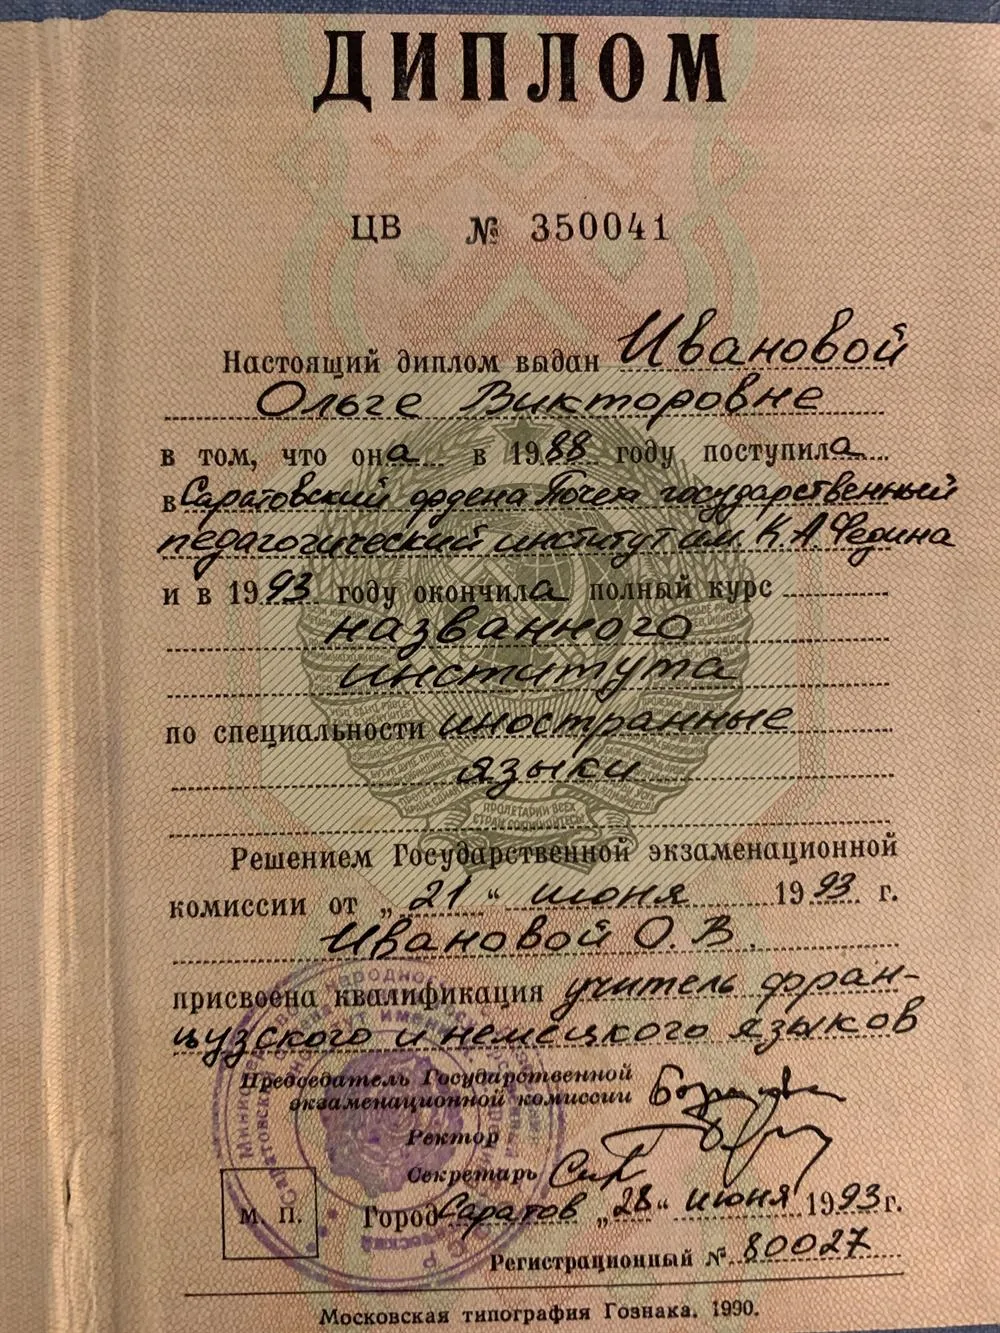 ДИПЛОМ
ЦВ № 350041
Настоящий диплом выдан Ивановой
Ольге Викторовне
в том, что она в 1988 году поступила
в Саратовский ордена Почета государственный
педагогический институт им. К. А. Федина
и в 1993 году окончила полный курс
названного
института
по специальности иностранные
языки
ПРОЛЕТАРИИ ВСЕХ
СТРАН СОЕДИНЯЙТЕСЬ
Решением Государственной экзаменационной
комиссии от „21“ июня 1993 г.
Ивановой О. В.
присвоена квалификация учитель фран-
цузского и немецкого языков
Председатель Государственной
экзаменационной комиссии
Ректор
Секретарь
М. П.
Город Саратов „28“ июня 1993 г.
Регистрационный № 80027
Московская типография Гознака. 1990.